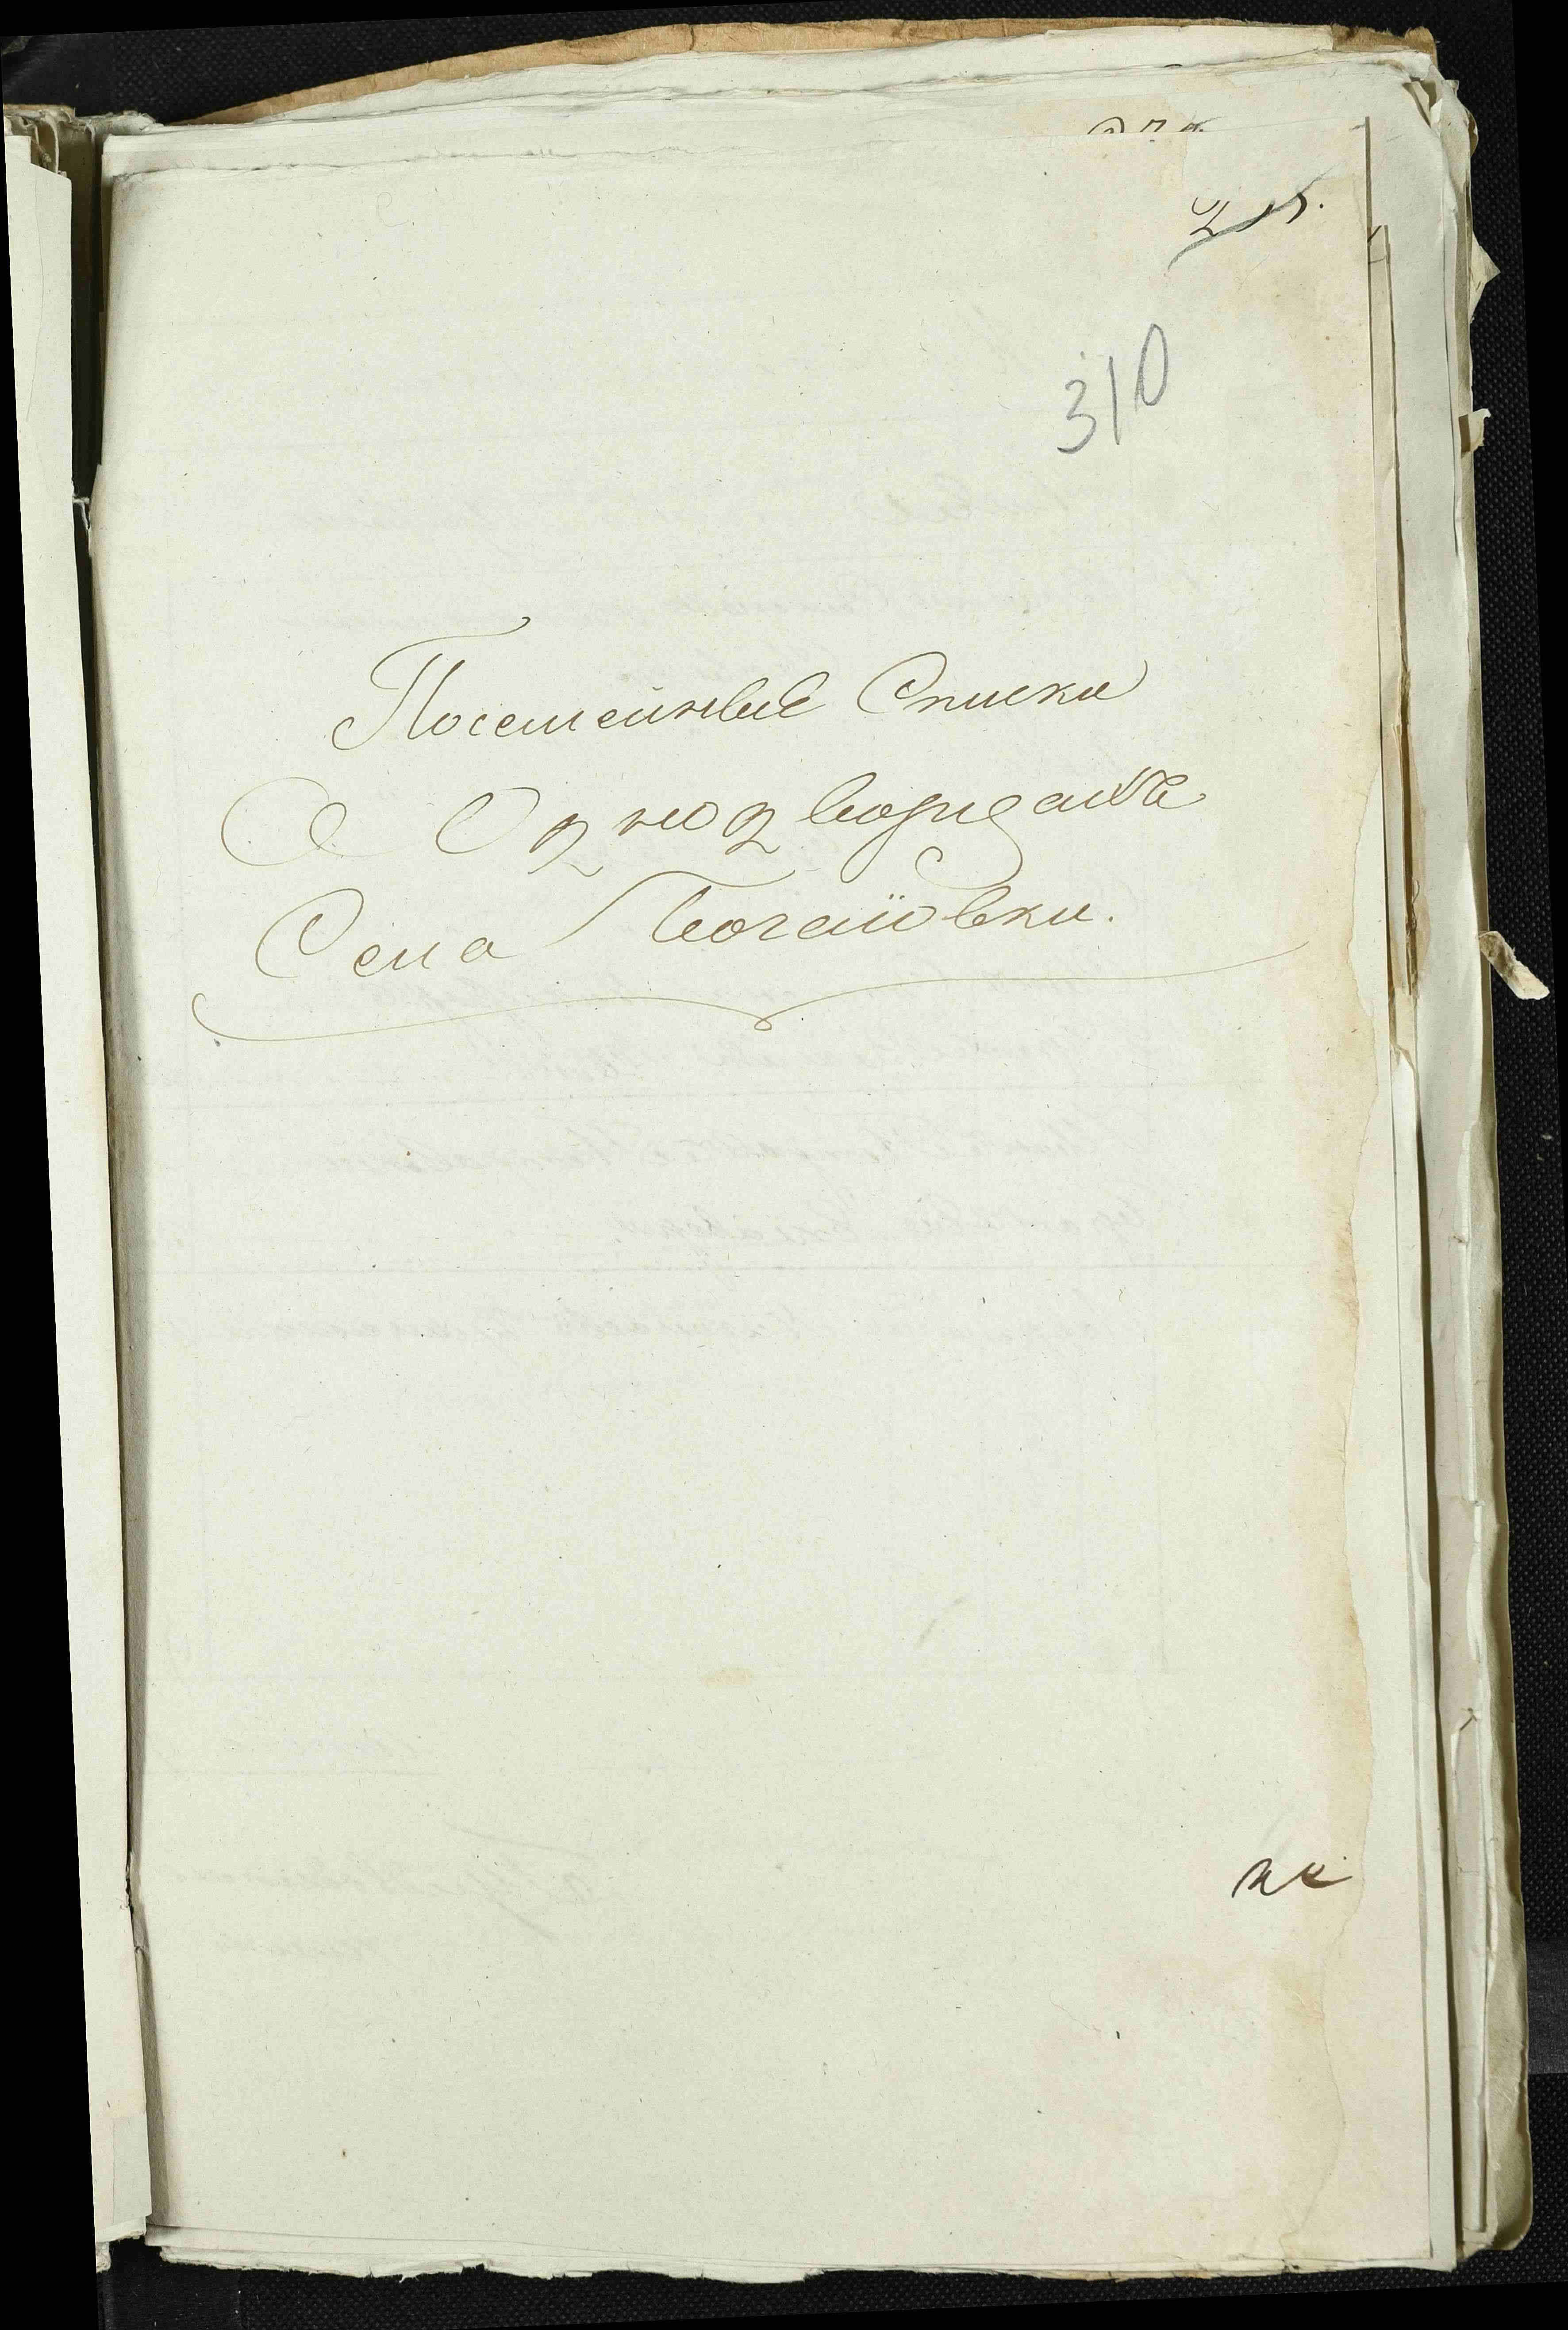 310
Посемейные Списки
О Однодворцахъ
Села Богановки.